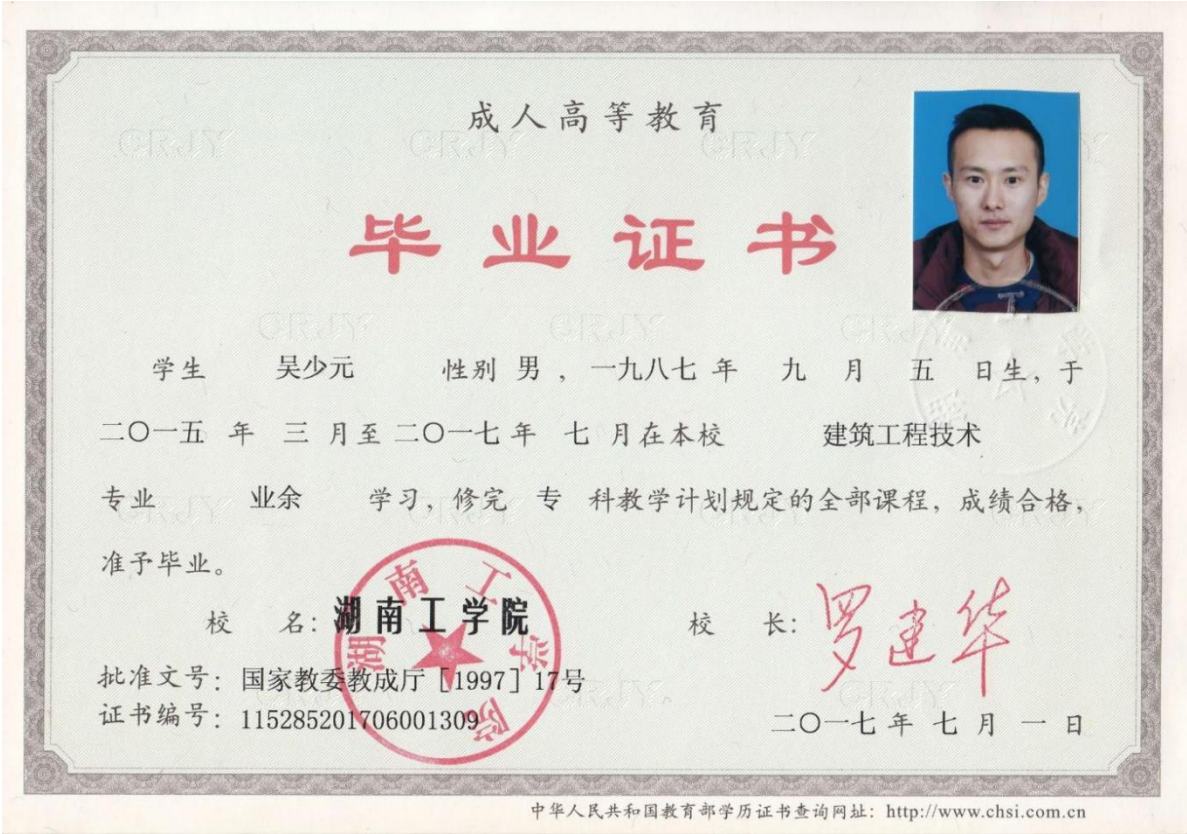 成人高等教育
毕业证书
学生 吴少元 性别 男 ，一九八七 年 九 月 五 日生，于
二〇一五 年 三 月至 二〇一七 年 七 月在本校 建筑工程技术
专业 业余 学习，修完 专 科教学计划规定的全部课程，成绩合格，
准予毕业。
校 名：湖南工学院
校 长：罗建华
湖南工学院
批准文号：国家教委教成厅［1997］17号
证书编号：115285201706001309
二〇一七 年 七 月 一 日
中华人民共和国教育部学历证书查询网址：http://www.chsi.com.cn
CRJY
CRJY
CRJY
CRJY
CRJY
CRJY
CRJY
CRJY
CRJY